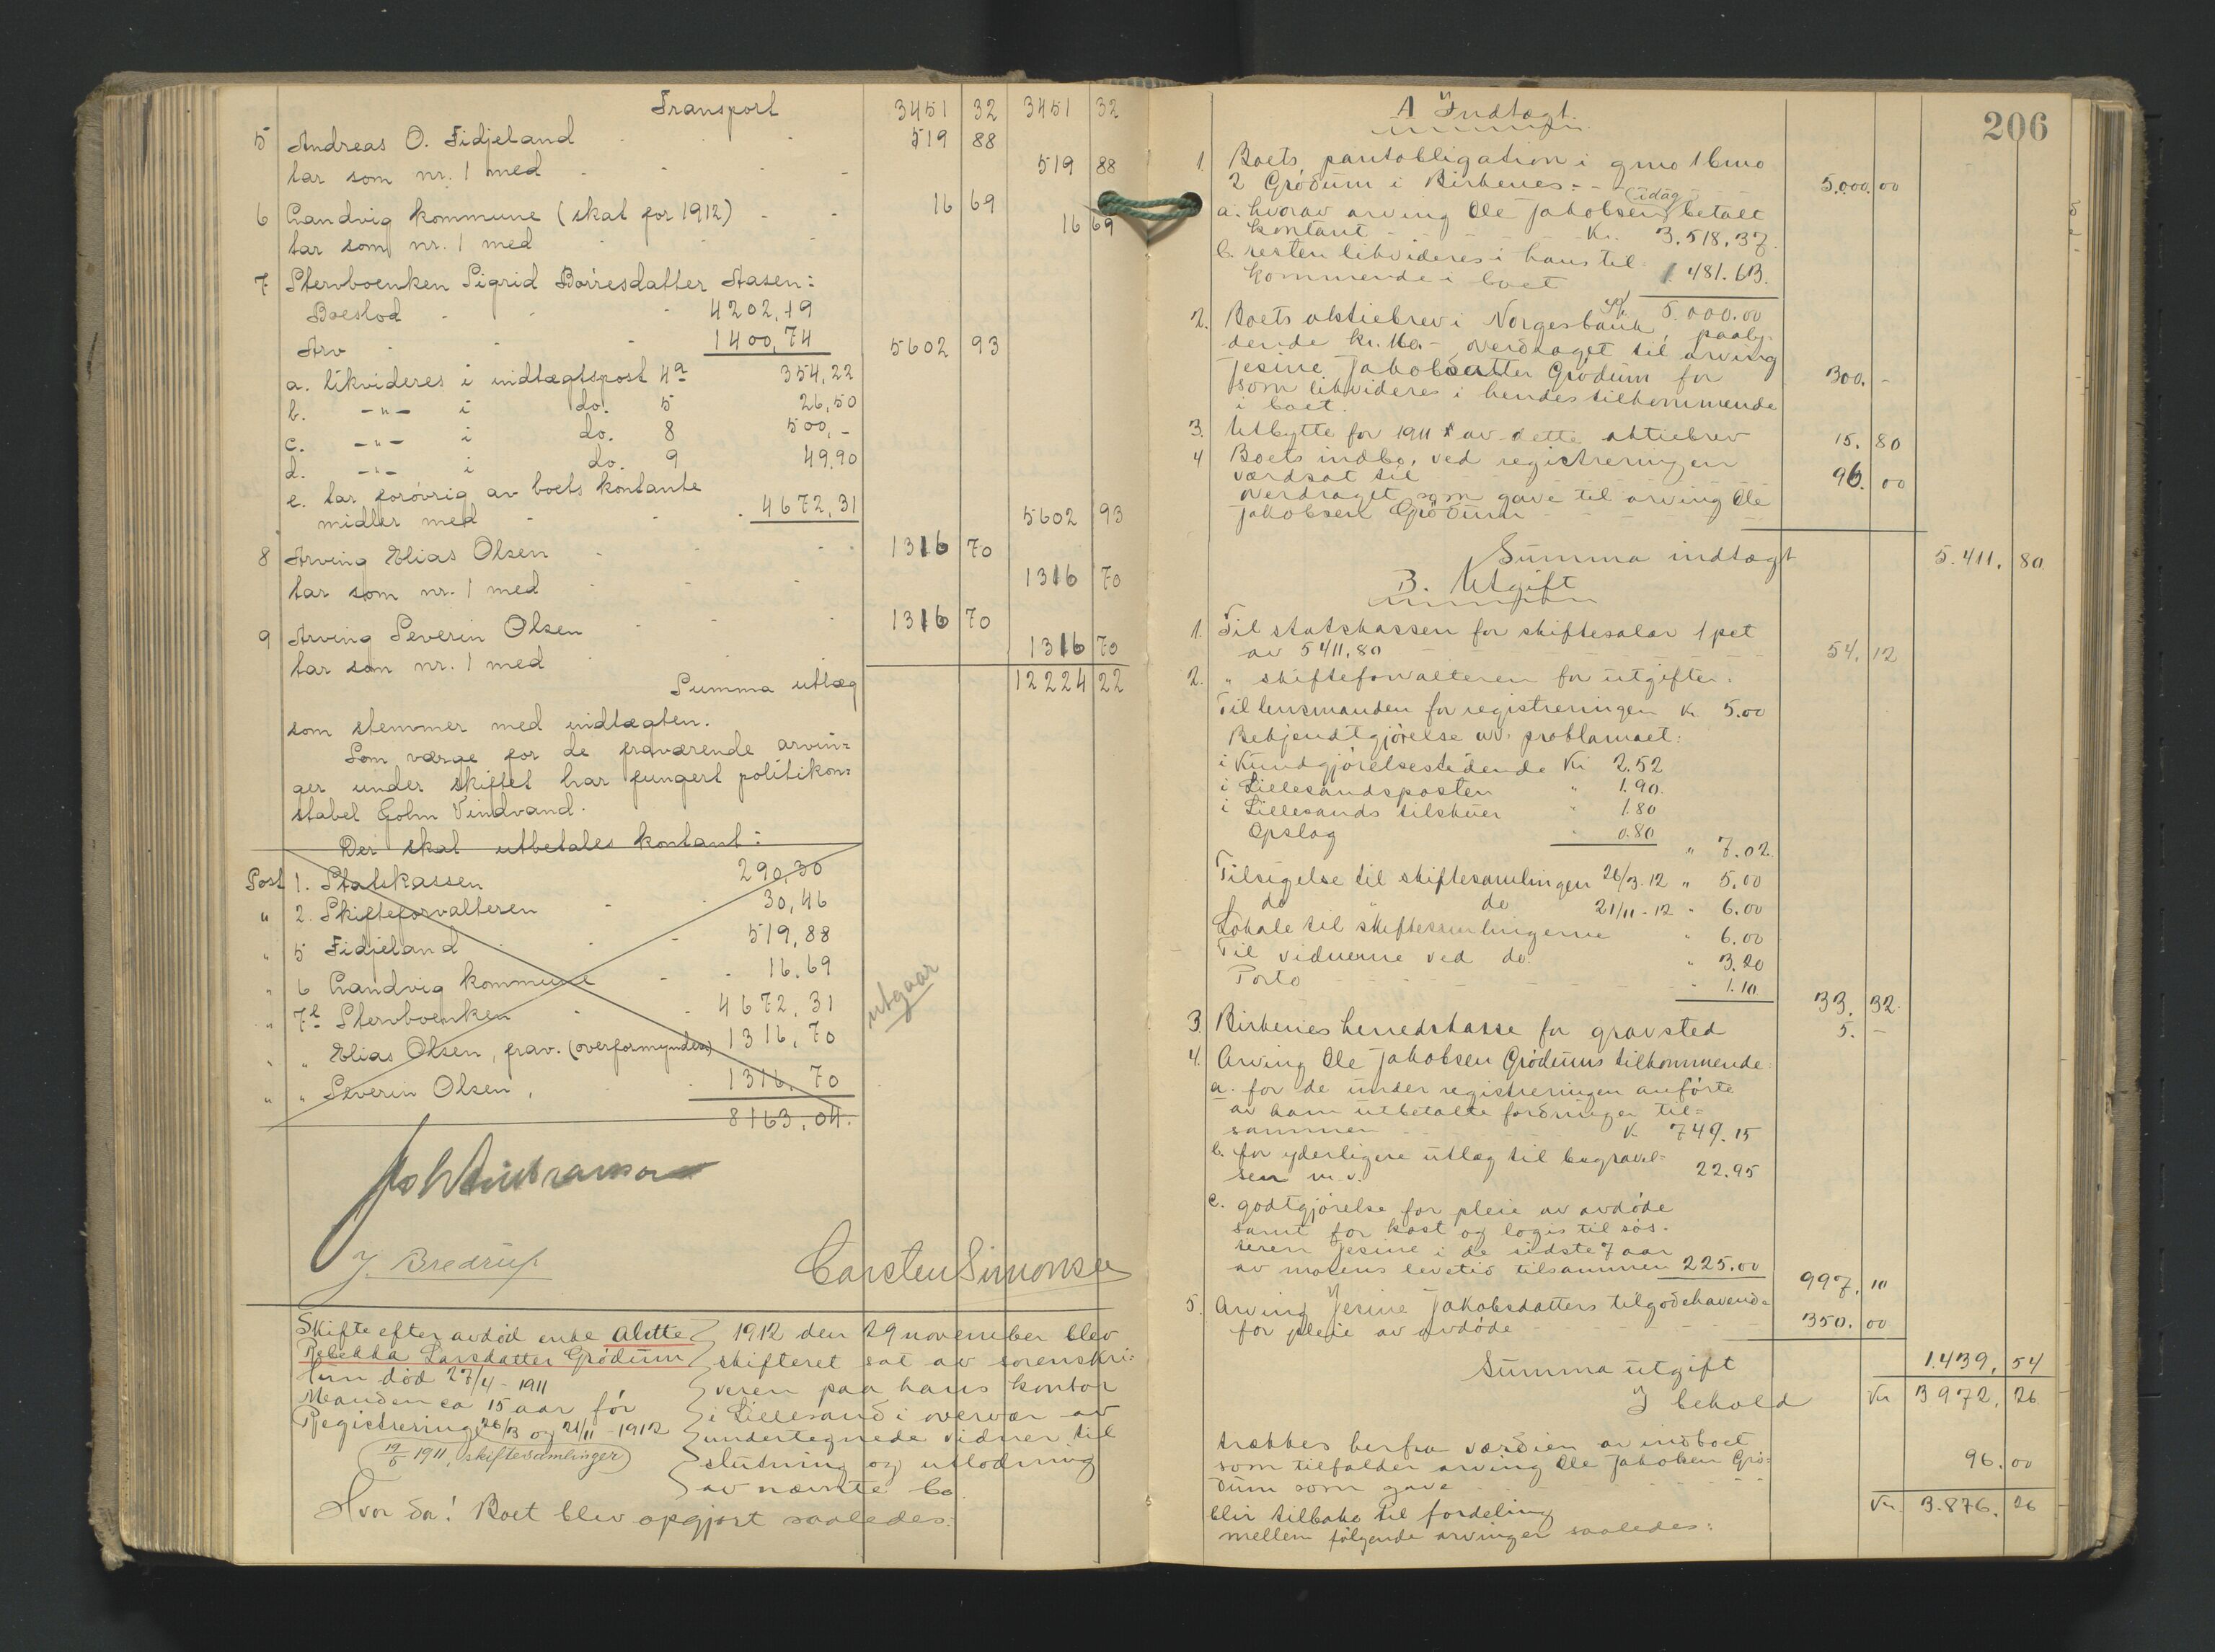 Transport 3451 32 3451 32
5 Andreas O. Fidjeland 519 88
tar som nr. 1 med 519 88
6 Landvig kommune (skat for 1912) 16 69
tar som nr. 1 med 16 69
7 Stervboenken Sigrid Börresdatter Aasen:
Boeslod 4202,19
Arv 1400,74 5602 93
a. likvideres i indtægtspost 4a 354,22
b. -"- i do. 5 26,50
c. -"- i do. 8 500,-
d. -"- i do. 9 49,90
e. tar forövrig av boets kontante
midler med 4672,31 5602 93
8 Arving Elias Olsen 1316 70
tar som nr. 1 med 1316 70
9 Arving Severin Olsen 1316 70
tar som nr. 1 med 1316 70
Summa utlæg 12224 22
som stemmer med indtægten.
Som værge for de fraværende arvin=
ger under skiftet har fungert politikon=
stabel Golm Vindvand.
Der skal utbetales kontant:
Post 1. Statskassen 290,30
" 2. Skifteforvalteren 30,46
" 5 Fidjeland 519,88
" 6 Landvig kommune 16.69
" 7e Stervboenken 4672,31
" " Elias Olsen, frav. (overformynderi) 1316,70
" " Severin Olsen, 1316.70
8163,04.
utgaar
J. Bredrup
Carsten Simonsen
Skifte efter avdöd enke Alette
Rebekka Larsdatter Grödum
Hun död 27/4 - 1911
Manden ca 15 aar för
Registrering 26/3 og 21/11 - 1912
1911, skiftesamlinger)
1912 den 29 november blev
skifteret sat av sorenskri=
veren paa hans kontor
i Lillesand i overvær av
undertegnede vidner til
slutning og utlodning
av nævnte bo.
Hvor da! Boet blev opgjort saaledes:
206
A Indtægt.
1. Boets pantobligation i gmo 16 mo
2 Grödum i Birkenes: 5.000.00
a. hvorav arving Ole Jakobsen (idag) betalt
kontant Kr. 3.518,37.
b. resten likvideres i hans til
kommende i boet 1.481.63.
Kr. 5.000.00
2. Boets aktiebrev i Norges bank, paaly-
dende kr. 160.- overdraget til arving
Jesine Jakobsdatter Grödum for 300.-
som likvideres i hendes tilkommende
i boet.
3. Utbytte for 1911 av dette aktiebrev 15.80
4 Boets indbo, ved registreringen
værdsat til 96.00
overdraget som gave til arving Ole
Jakobsen Grödum
Summa indtægt 5.411,80
B. Utgift
1. Til statskassen for skiftesalær 1 pct
av 5411,80 54,12
2. " skifteforvalteren for utgifter:
Til lensmanden for registreringen Kr. 5.00
Bekjendtgjörelse av proklamaet:
i Kundgjörelsestidende Kr 2.52
i Lillesandsposten " 1.90.
i Lillesands tilskuer " 1.80
Opslag " 0.80
" 7.02.
Tilsigelse til skiftesamlingen 26/3.12 " 5.00
do " do 21/11 - 12 - 6.00
Lokale til skiftesamlingerne " 6.00
Til vidnerne ved do. " 3.20
Porto " 1.10
33.32.
3. Birkenes herredskasse for gravsted 5.-
4. Arving Ole Jakobsen Grödums tilkommende:
a. for de under registreringen anförte
av ham utbetalte fordringer til=
sammen Kr 749.15
b. for yderligere utlæg til begravel=
sen m.v. 22.95
c. godtgjörelse for pleie av avdöde
samt for kost og logis til sös-
teren Jesine i de sidste 7 aar
av morens levetid tilsammen 225.00
997,10
5. Arving Jesine Jakobsdatters tilgodehavende
for pleie av avdöde 350.00
Summa utgift 1.439,54
I behold Kr 3972,26
trækkes herfra værdien av indboet
som tilfalder arving Ole Jakobsen Grö=
dum som gave 96.00
blir tilbake til fordeling Kr. 3.876.26
mellem fölgende arvinger saaledes: